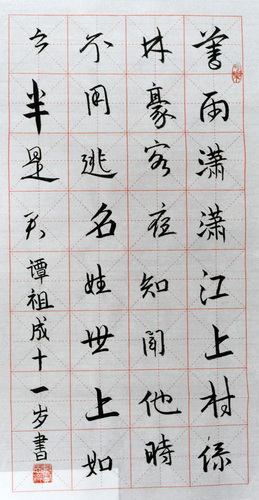 暮雨瀟瀟江上村綠
林豪客夜知聞他時
不用逃名姓世上如
今半是君 譚祖成十一岁書